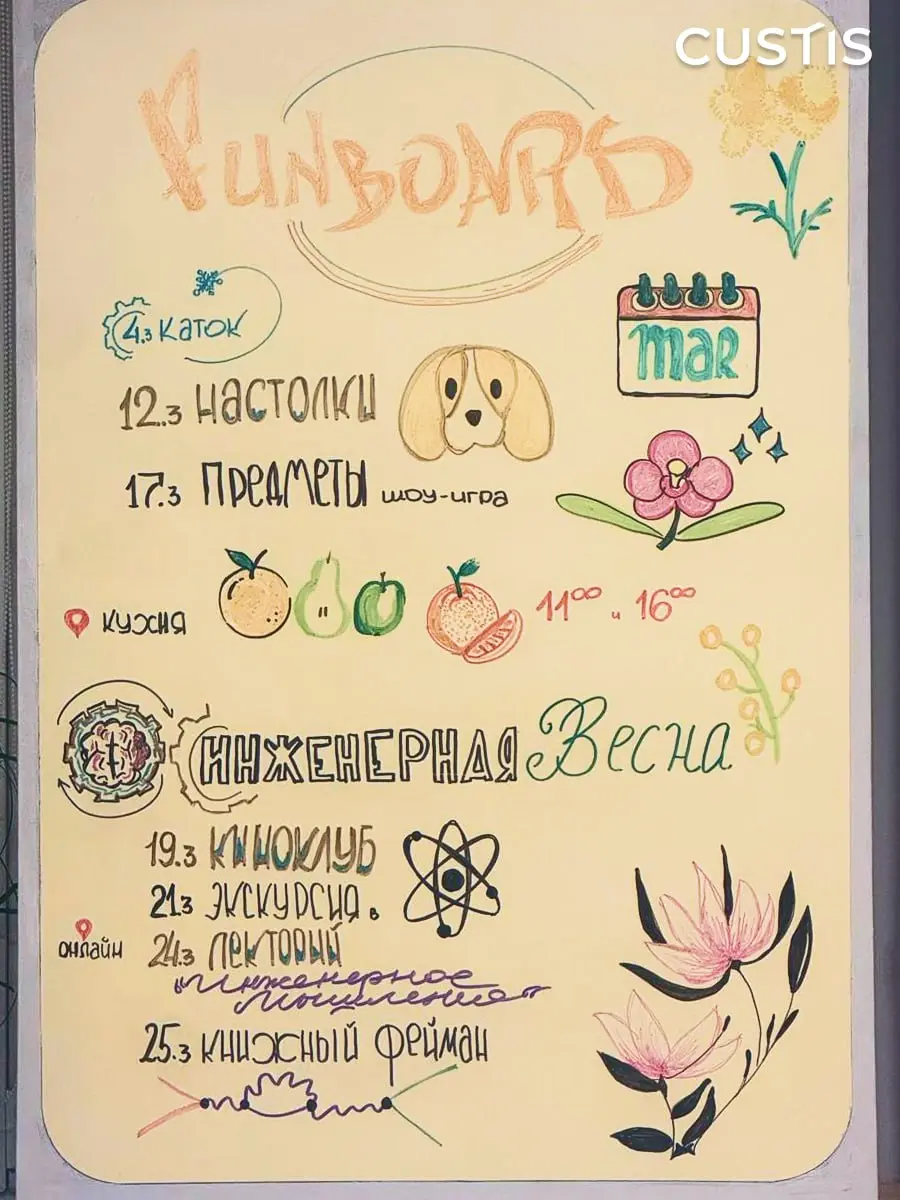 CUSTIS
FUNBOARD
4.3 КАТОК
MAR
12.3 НАСТОЛКИ
17.3 ПРЕДМЕТЫ ШОУ-ИГРА
КУХНЯ 11⁰⁰ и 16⁰⁰
ИНЖЕНЕРНАЯ Весна
19.3 КИНОКЛУБ
21.3 ЭКСКУРСИЯ в
ОНЛАЙН 24.3 ЛЕКТОРИЙ
"Инженерное
Мышление"
25.3 КНИЖНЫЙ ФЕЙМАН